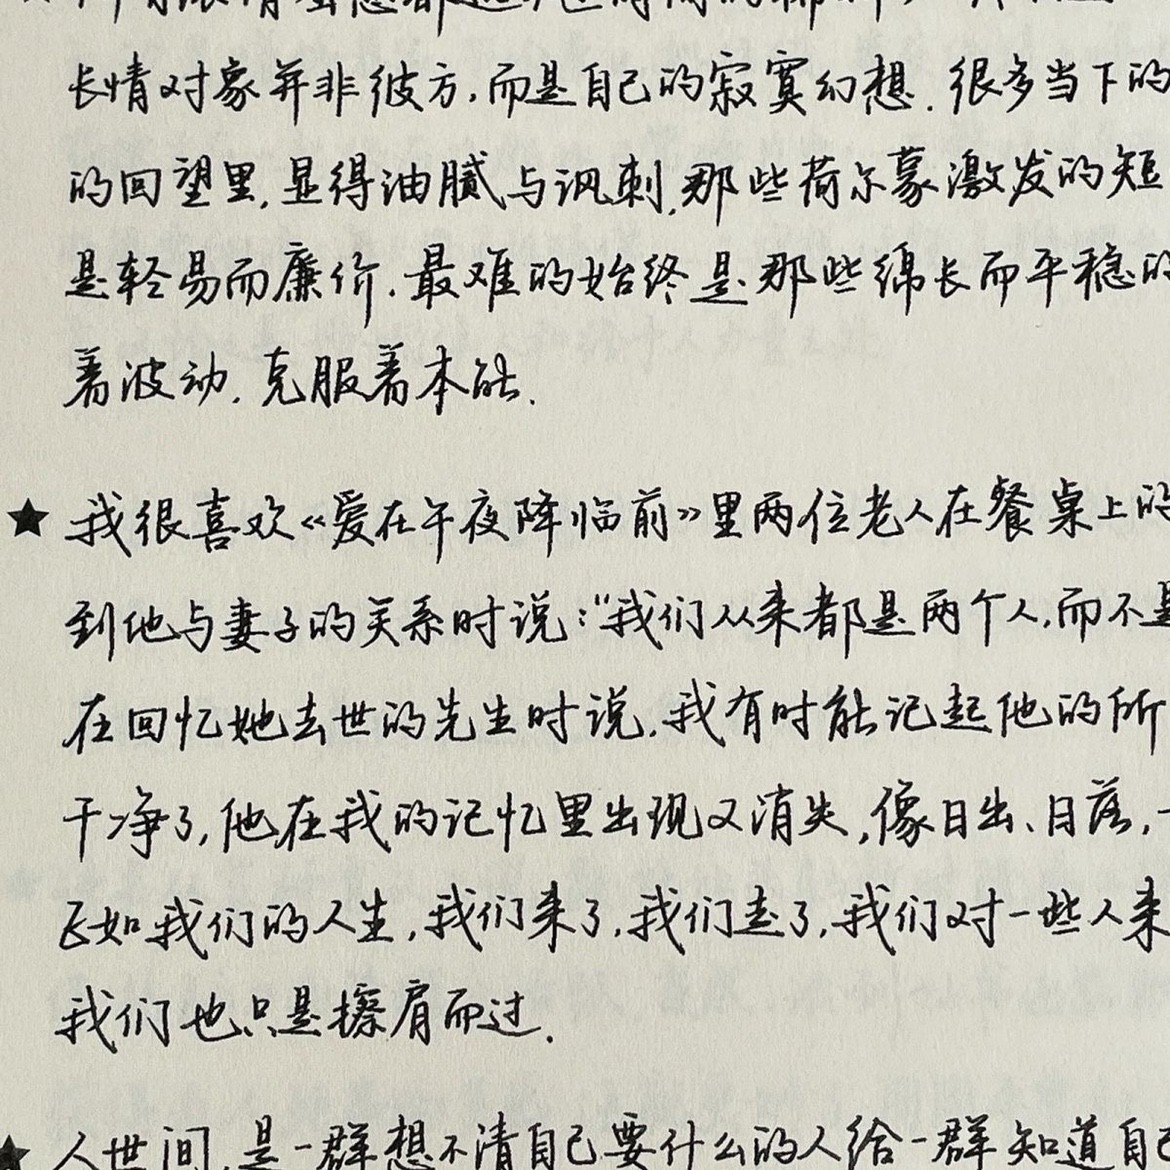 长情对象并非彼方,而是自己的寂寞幻想.很多当下的
的回望里,显得油腻与讽刺,那些荷尔蒙激发的短
是轻易而廉价.最难的始终是那些绵长而平稳的
着波动.克服着本能.
★ 我很喜欢《爱在午夜降临前》里两位老人在餐桌上的
到他与妻子的关系时说:"我们从来都是两个人,而不是
在回忆她去世的先生时说,我有时能记起他的所
干净了,他在我的记忆里出现又消失,像日出、日落,一
正如我们的人生,我们来了,我们走了,我们对一些人来
我们也只是擦肩而过.
★ 人世间,是一群想不清自己要什么的人给一群知道自己